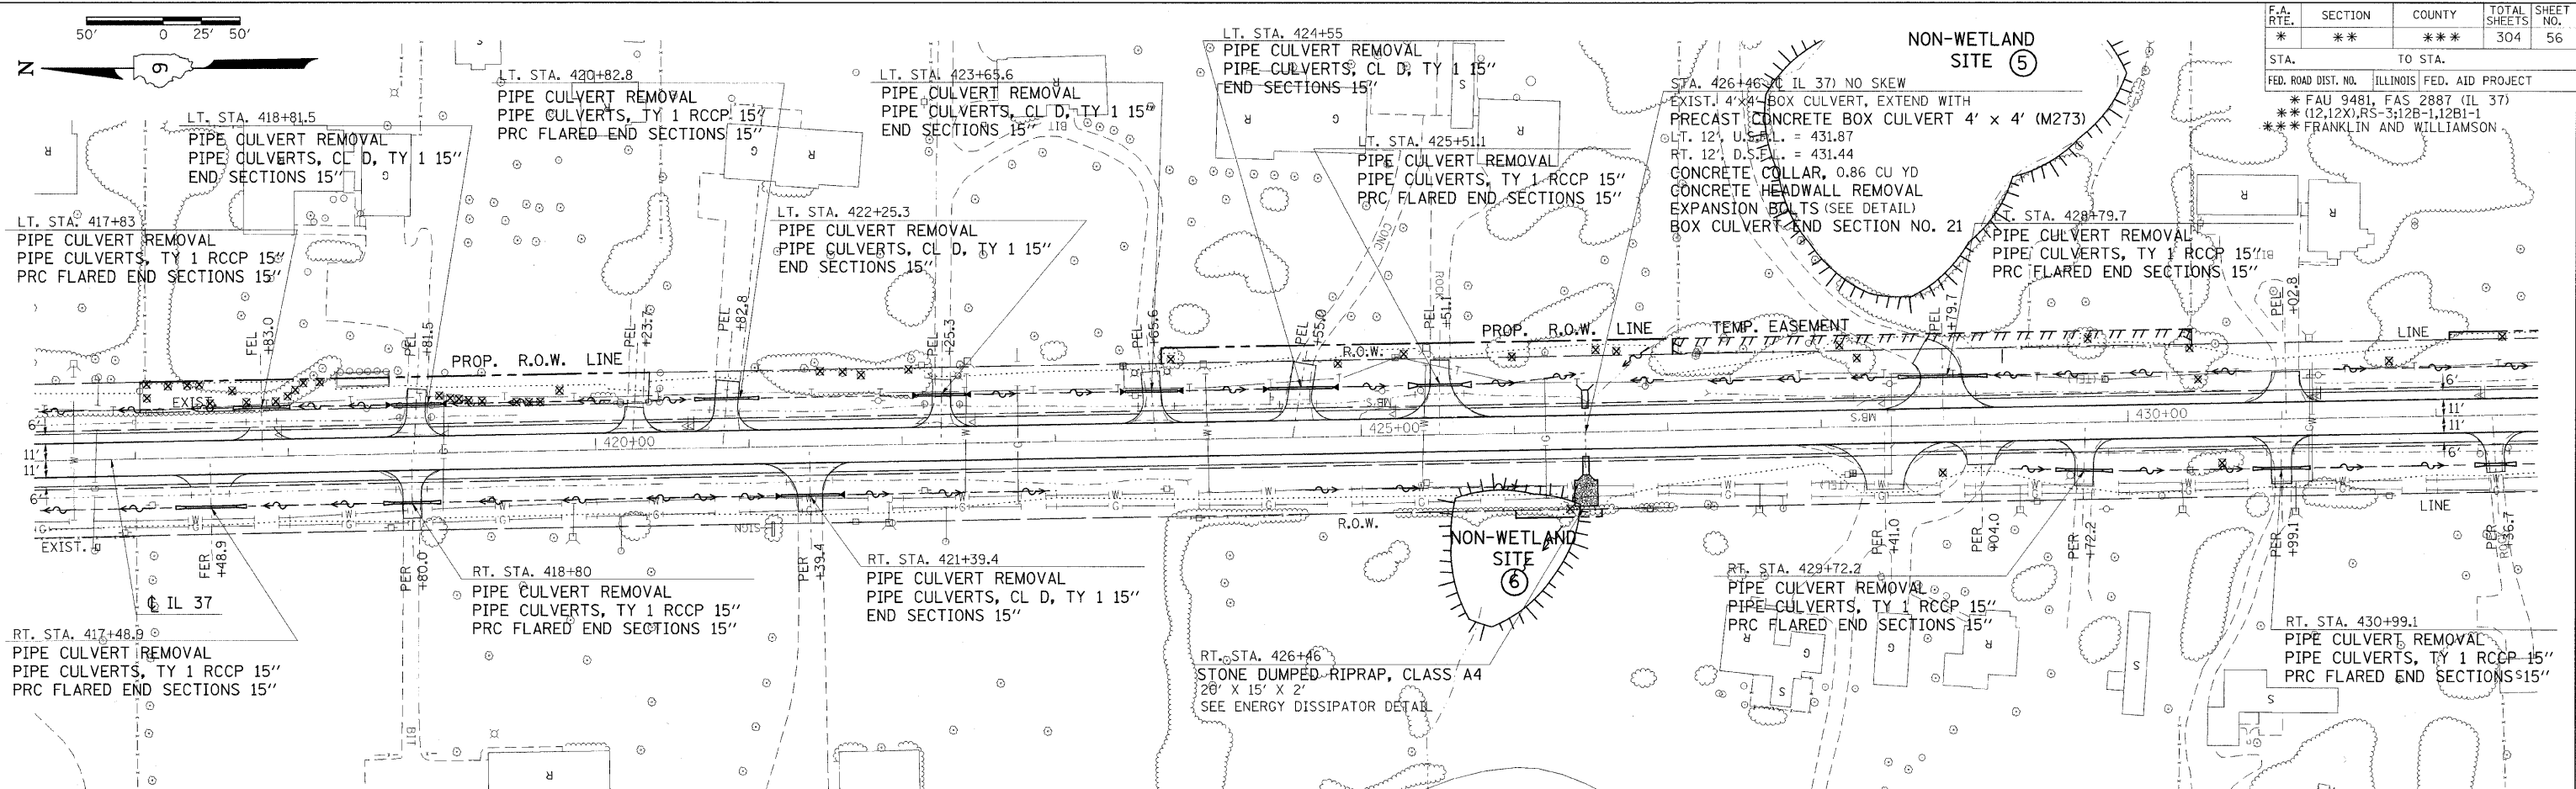 50' 0 25' 50'
N
9
F.A. RTE. SECTION COUNTY TOTAL SHEETS SHEET NO.
* ** *** 304 56
STA. TO STA.
FED. ROAD DIST. NO. ILLINOIS FED. AID PROJECT
* FAU 9481, FAS 2887 (IL 37)
** (12,12X),RS-3;12B-1,12B1-1
*** FRANKLIN AND WILLIAMSON
NON-WETLAND
SITE 5
LT. STA. 417+83
PIPE CULVERT REMOVAL
PIPE CULVERTS, TY 1 RCCP 15"
PRC FLARED END SECTIONS 15"
LT. STA. 418+81.5
PIPE CULVERT REMOVAL
PIPE CULVERTS, CL D, TY 1 15"
END SECTIONS 15"
LT. STA. 420+82.8
PIPE CULVERT REMOVAL
PIPE CULVERTS, TY 1 RCCP 15"
PRC FLARED END SECTIONS 15"
LT. STA. 422+25.3
PIPE CULVERT REMOVAL
PIPE CULVERTS, CL D, TY 1 15"
END SECTIONS 15"
LT. STA. 423+65.6
PIPE CULVERT REMOVAL
PIPE CULVERTS, CL D, TY 1 15"
END SECTIONS 15"
LT. STA. 424+55
PIPE CULVERT REMOVAL
PIPE CULVERTS, CL D, TY 1 15"
END SECTIONS 15"
LT. STA. 425+51.1
PIPE CULVERT REMOVAL
PIPE CULVERTS, TY 1 RCCP 15"
PRC FLARED END SECTIONS 15"
STA. 426+46 (℄ IL 37) NO SKEW
EXIST. 4'x4' BOX CULVERT, EXTEND WITH
PRECAST CONCRETE BOX CULVERT 4' x 4' (M273)
LT. 12', U.S.F.L. = 431.87
RT. 12', D.S.F.L. = 431.44
CONCRETE COLLAR, 0.86 CU YD
CONCRETE HEADWALL REMOVAL
EXPANSION BOLTS (SEE DETAIL)
BOX CULVERT END SECTION NO. 21
LT. STA. 428+79.7
PIPE CULVERT REMOVAL
PIPE CULVERTS, TY 1 RCCP 15"
PRC FLARED END SECTIONS 15"
BIT
CONC
ROCK
BIT
FEL +83.0
PEL +81.5
PEL +23.7
PEL +82.8
PEL +25.3
PEL +65.6
PEL +55.0
PEL +51.1
PEL +79.7
PEL +02.8
PROP. R.O.W. LINE
R.O.W.
PROP. R.O.W. LINE
TEMP. EASEMENT
LINE
EXIST.
M.B'S
M.B'S
6' 6'
11' 420+00 425+00 430+00 11'
11' 11'
6' 6'
EXIST.
SIGN
R.O.W.
LINE
FER +48.9
PER +80.0
PER +39.4
PER +41.0
PER +04.0
PER +72.2
PER +99.1
PER +36.7
℄ IL 37
NON-WETLAND
SITE
6
RT. STA. 417+48.9
PIPE CULVERT REMOVAL
PIPE CULVERTS, TY 1 RCCP 15"
PRC FLARED END SECTIONS 15"
RT. STA. 418+80
PIPE CULVERT REMOVAL
PIPE CULVERTS, TY 1 RCCP 15"
PRC FLARED END SECTIONS 15"
RT. STA. 421+39.4
PIPE CULVERT REMOVAL
PIPE CULVERTS, CL D, TY 1 15"
END SECTIONS 15"
RT. STA. 426+46
STONE DUMPED RIPRAP, CLASS A4
20' X 15' X 2'
SEE ENERGY DISSIPATOR DETAIL
RT. STA. 429+72.2
PIPE CULVERT REMOVAL
PIPE CULVERTS, TY 1 RCCP 15"
PRC FLARED END SECTIONS 15"
RT. STA. 430+99.1
PIPE CULVERT REMOVAL
PIPE CULVERTS, TY 1 RCCP 15"
PRC FLARED END SECTIONS 15"
BIT